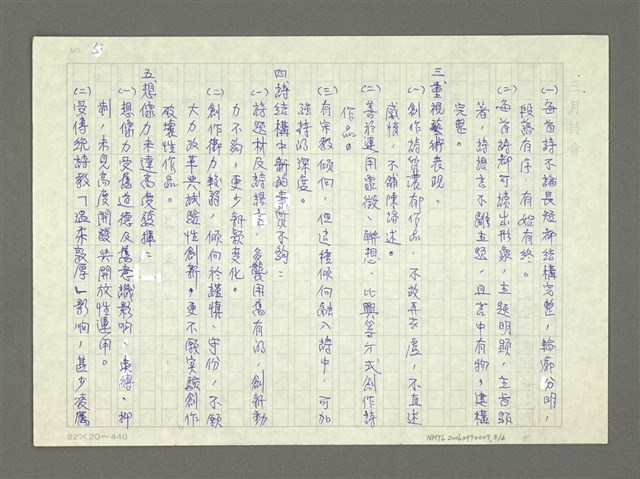 NO. 5
(一)每首詩不論長短都結構完整,輪廓分明,
段落有序,有始有終。
(二)每首詩都可讀出形象,主題明顯,主旨顯
著,詩語言不離主題,且言中有物,建構
完整。
三、重視藝術表現。
(一)創作詩質濃郁作品,不故弄玄虛,不直述
感情,不舖陳論述。
(二)善於運用靈徵、聯想、比興等方式創作詩
作品。
(三)有宗教傾向,但這種傾向融入詩中,可加
強詩的深度。
四、詩結構中新的素質不夠:
(一)詩題材及詩語言,多襲用舊有的,創新動
力不夠,更少新穎變化。
(二)創作衝力較弱,傾向於謹慎、守份,不願
大力改革與試驗性創新,更不願實驗創作
破壞性作品。
五、想像力未達高度發揮:
(一)想像力受舊道德及舊意識影響,束縛、抑
制,未見高度開發與開放性運用。
(二)受傳統詩教「溫柔敦厚」影響,甚少發屬
22×20=440
NMTL20060970007,5/6